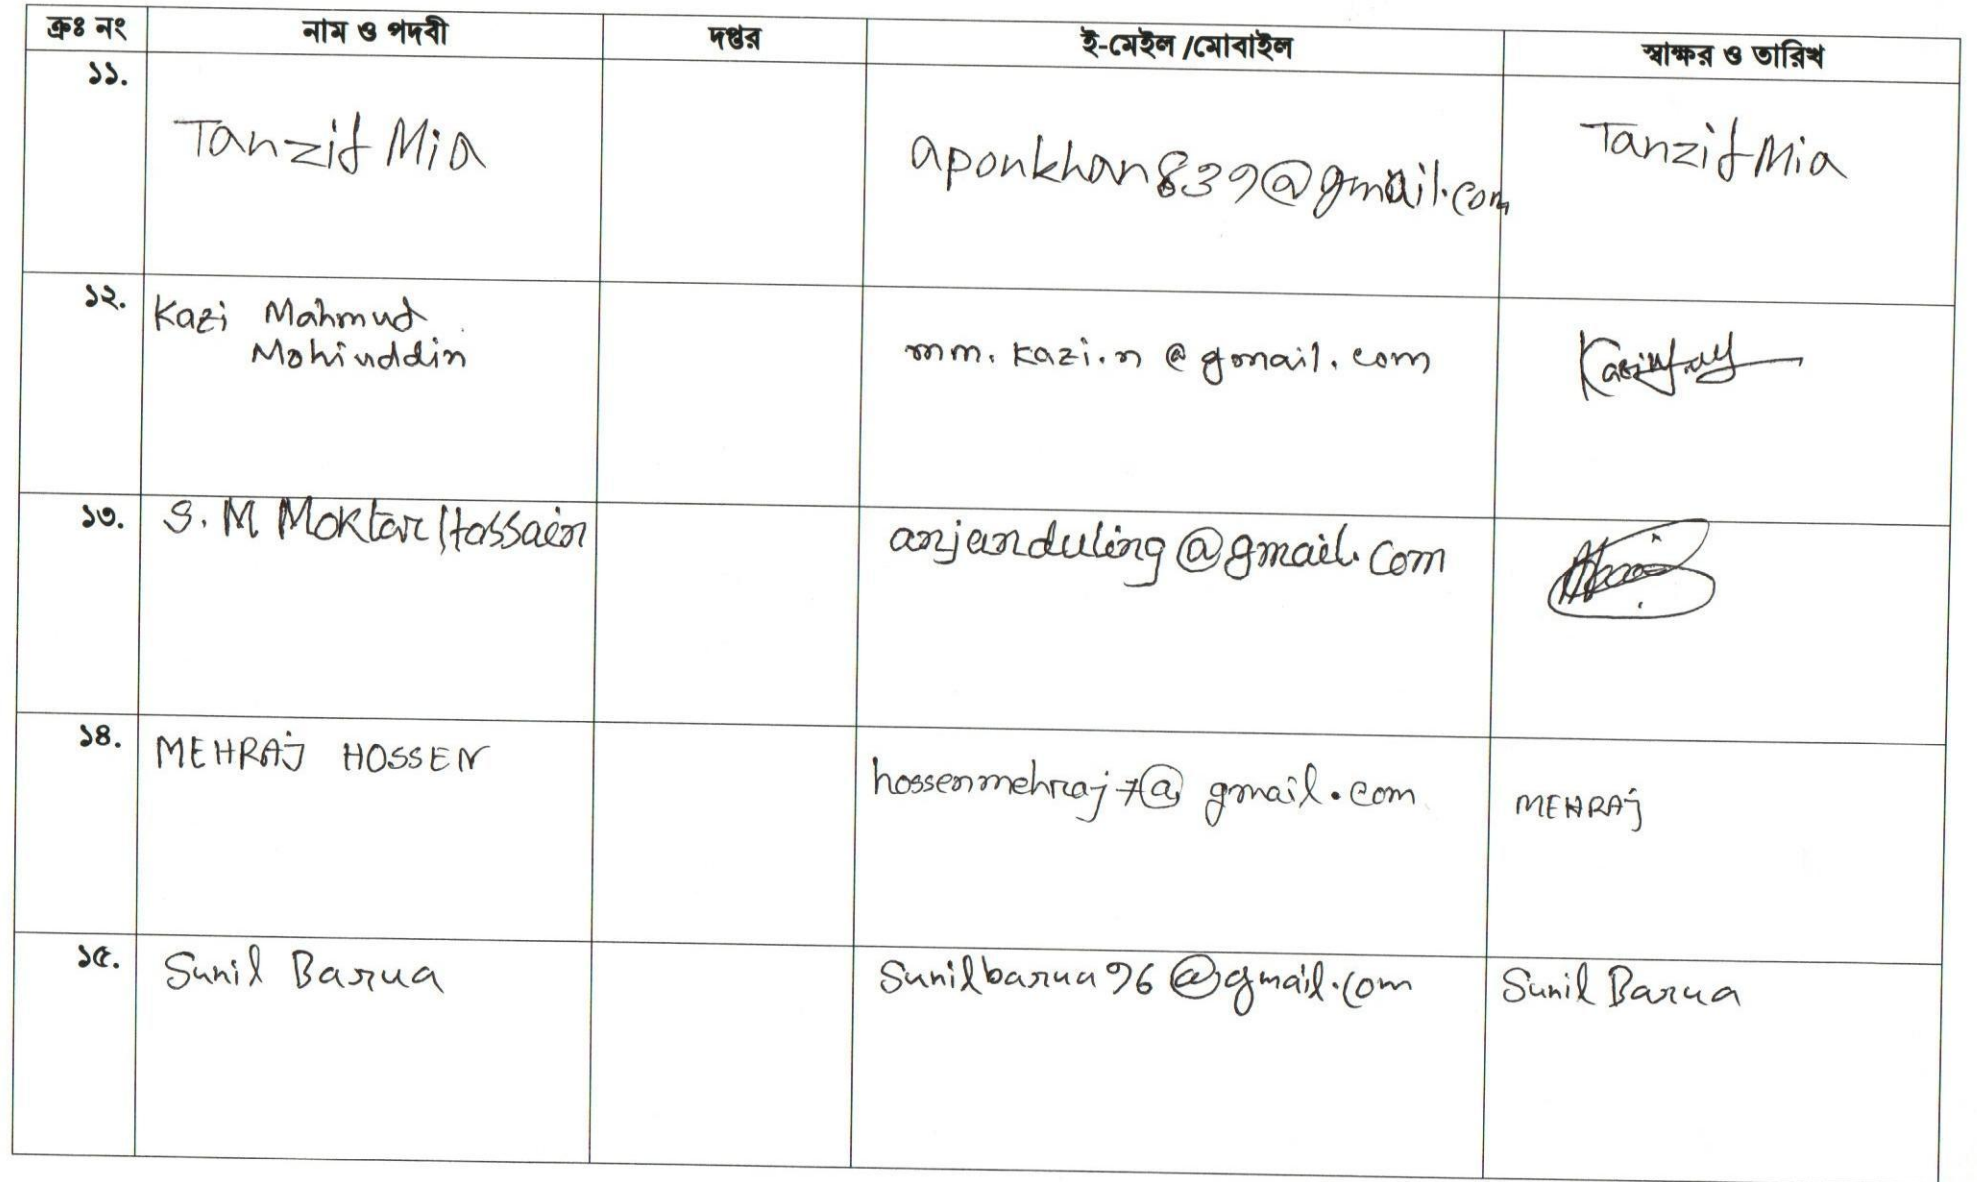 ক্রঃ নং নাম ও পদবী দপ্তর ই-মেইল /মোবাইল স্বাক্ষর ও তারিখ
১১. Tanzif Mia aponkhan839@gmail.com Tanzif Mia
১২. Kazi Mahmud
Mohiuddin mm.kazi.n@gmail.com
১৩. S. M Moktar Hossain anjanduling@gmail.com
১৪. MEHRAJ HOSSEN hossenmehraj7@gmail.com MEHRAJ
১৫. Sunil Barua Sunilbarua96@gmail.com Sunil Barua